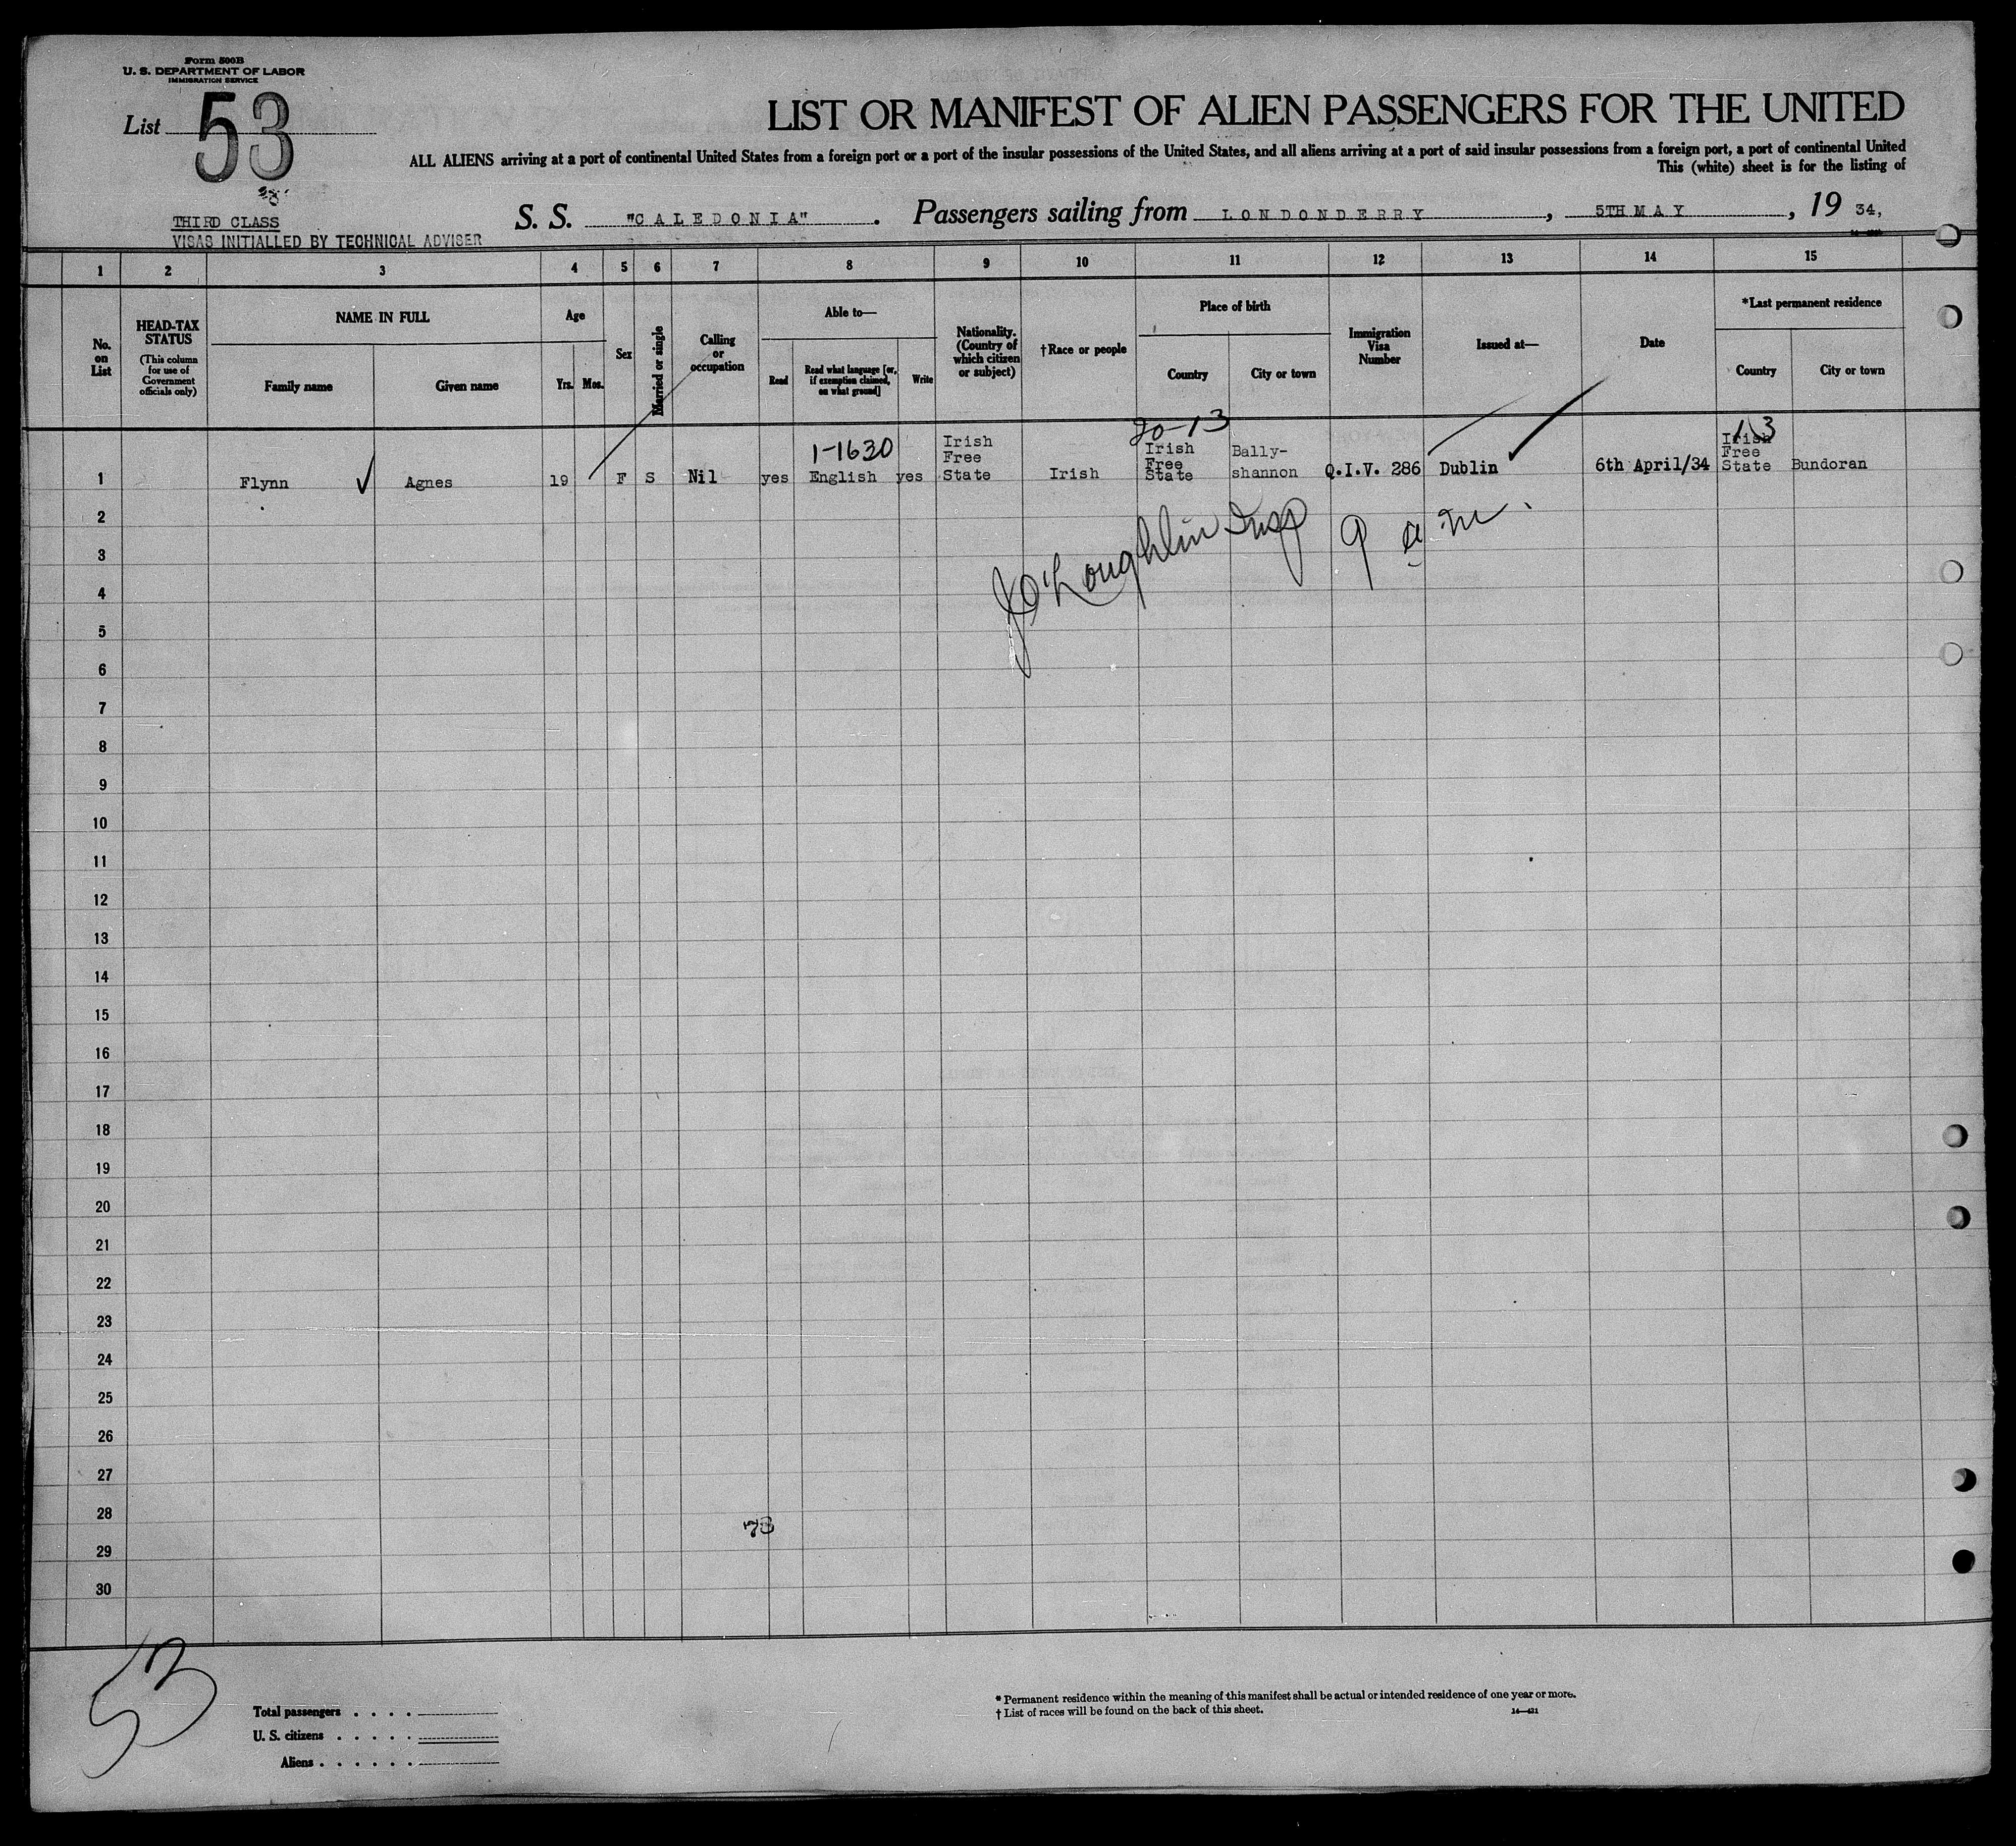 Form 500B
U. S. DEPARTMENT OF LABOR
IMMIGRATION SERVICE
List 53
LIST OR MANIFEST OF ALIEN PASSENGERS FOR THE UNITED
ALL ALIENS arriving at a port of continental United States from a foreign port or a port of the insular possessions of the United States, and all aliens arriving at a port of said insular possessions from a foreign port, a port of continental United
This (white) sheet is for the listing of
THIRD CLASS
VISAS INITIALLED BY TECHNICAL ADVISER
S. S. "CALEDONIA". Passengers sailing from LONDONDERRY, 5TH MAY, 19 34,
1 2 3 4 5 6 7 8 9 10 11 12 13 14 15
No. on List
HEAD-TAX STATUS
(This column for use of Government officials only)
NAME IN FULL
Family name
Given name
Age
Yrs. Mos.
Sex
Married or single
Calling or occupation
Able to—
Read
Read what language [or, if exemption claimed, on what ground]
Write
Nationality. (Country of which citizen or subject)
†Race or people
Place of birth
Country
City or town
Immigration Visa Number
Issued at—
Date
*Last permanent residence
Country
City or town
1-1630
20-13
1 3
1 Flynn Agnes 19 F S Nil yes English yes Irish Free State Irish Irish Free State Bally-shannon Q.I.V. 286 Dublin 6th April/34 Irish Free State Bundoran
J O'Loughlin Insp 9 a m.
2
3
4
5
6
7
8
9
10
11
12
13
14
15
16
17
18
19
20
21
22
23
24
25
26
27
28
73
29
30
53
Total passengers . . . .
U. S. citizens . . . . .
Aliens . . . . . .
* Permanent residence within the meaning of this manifest shall be actual or intended residence of one year or more.
† List of races will be found on the back of this sheet.
14—421